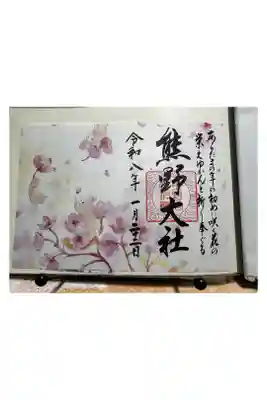 あらたまの年の初めに咲く花の
栄えゆかんと祈り奉る
熊野大社
令和八年 一月